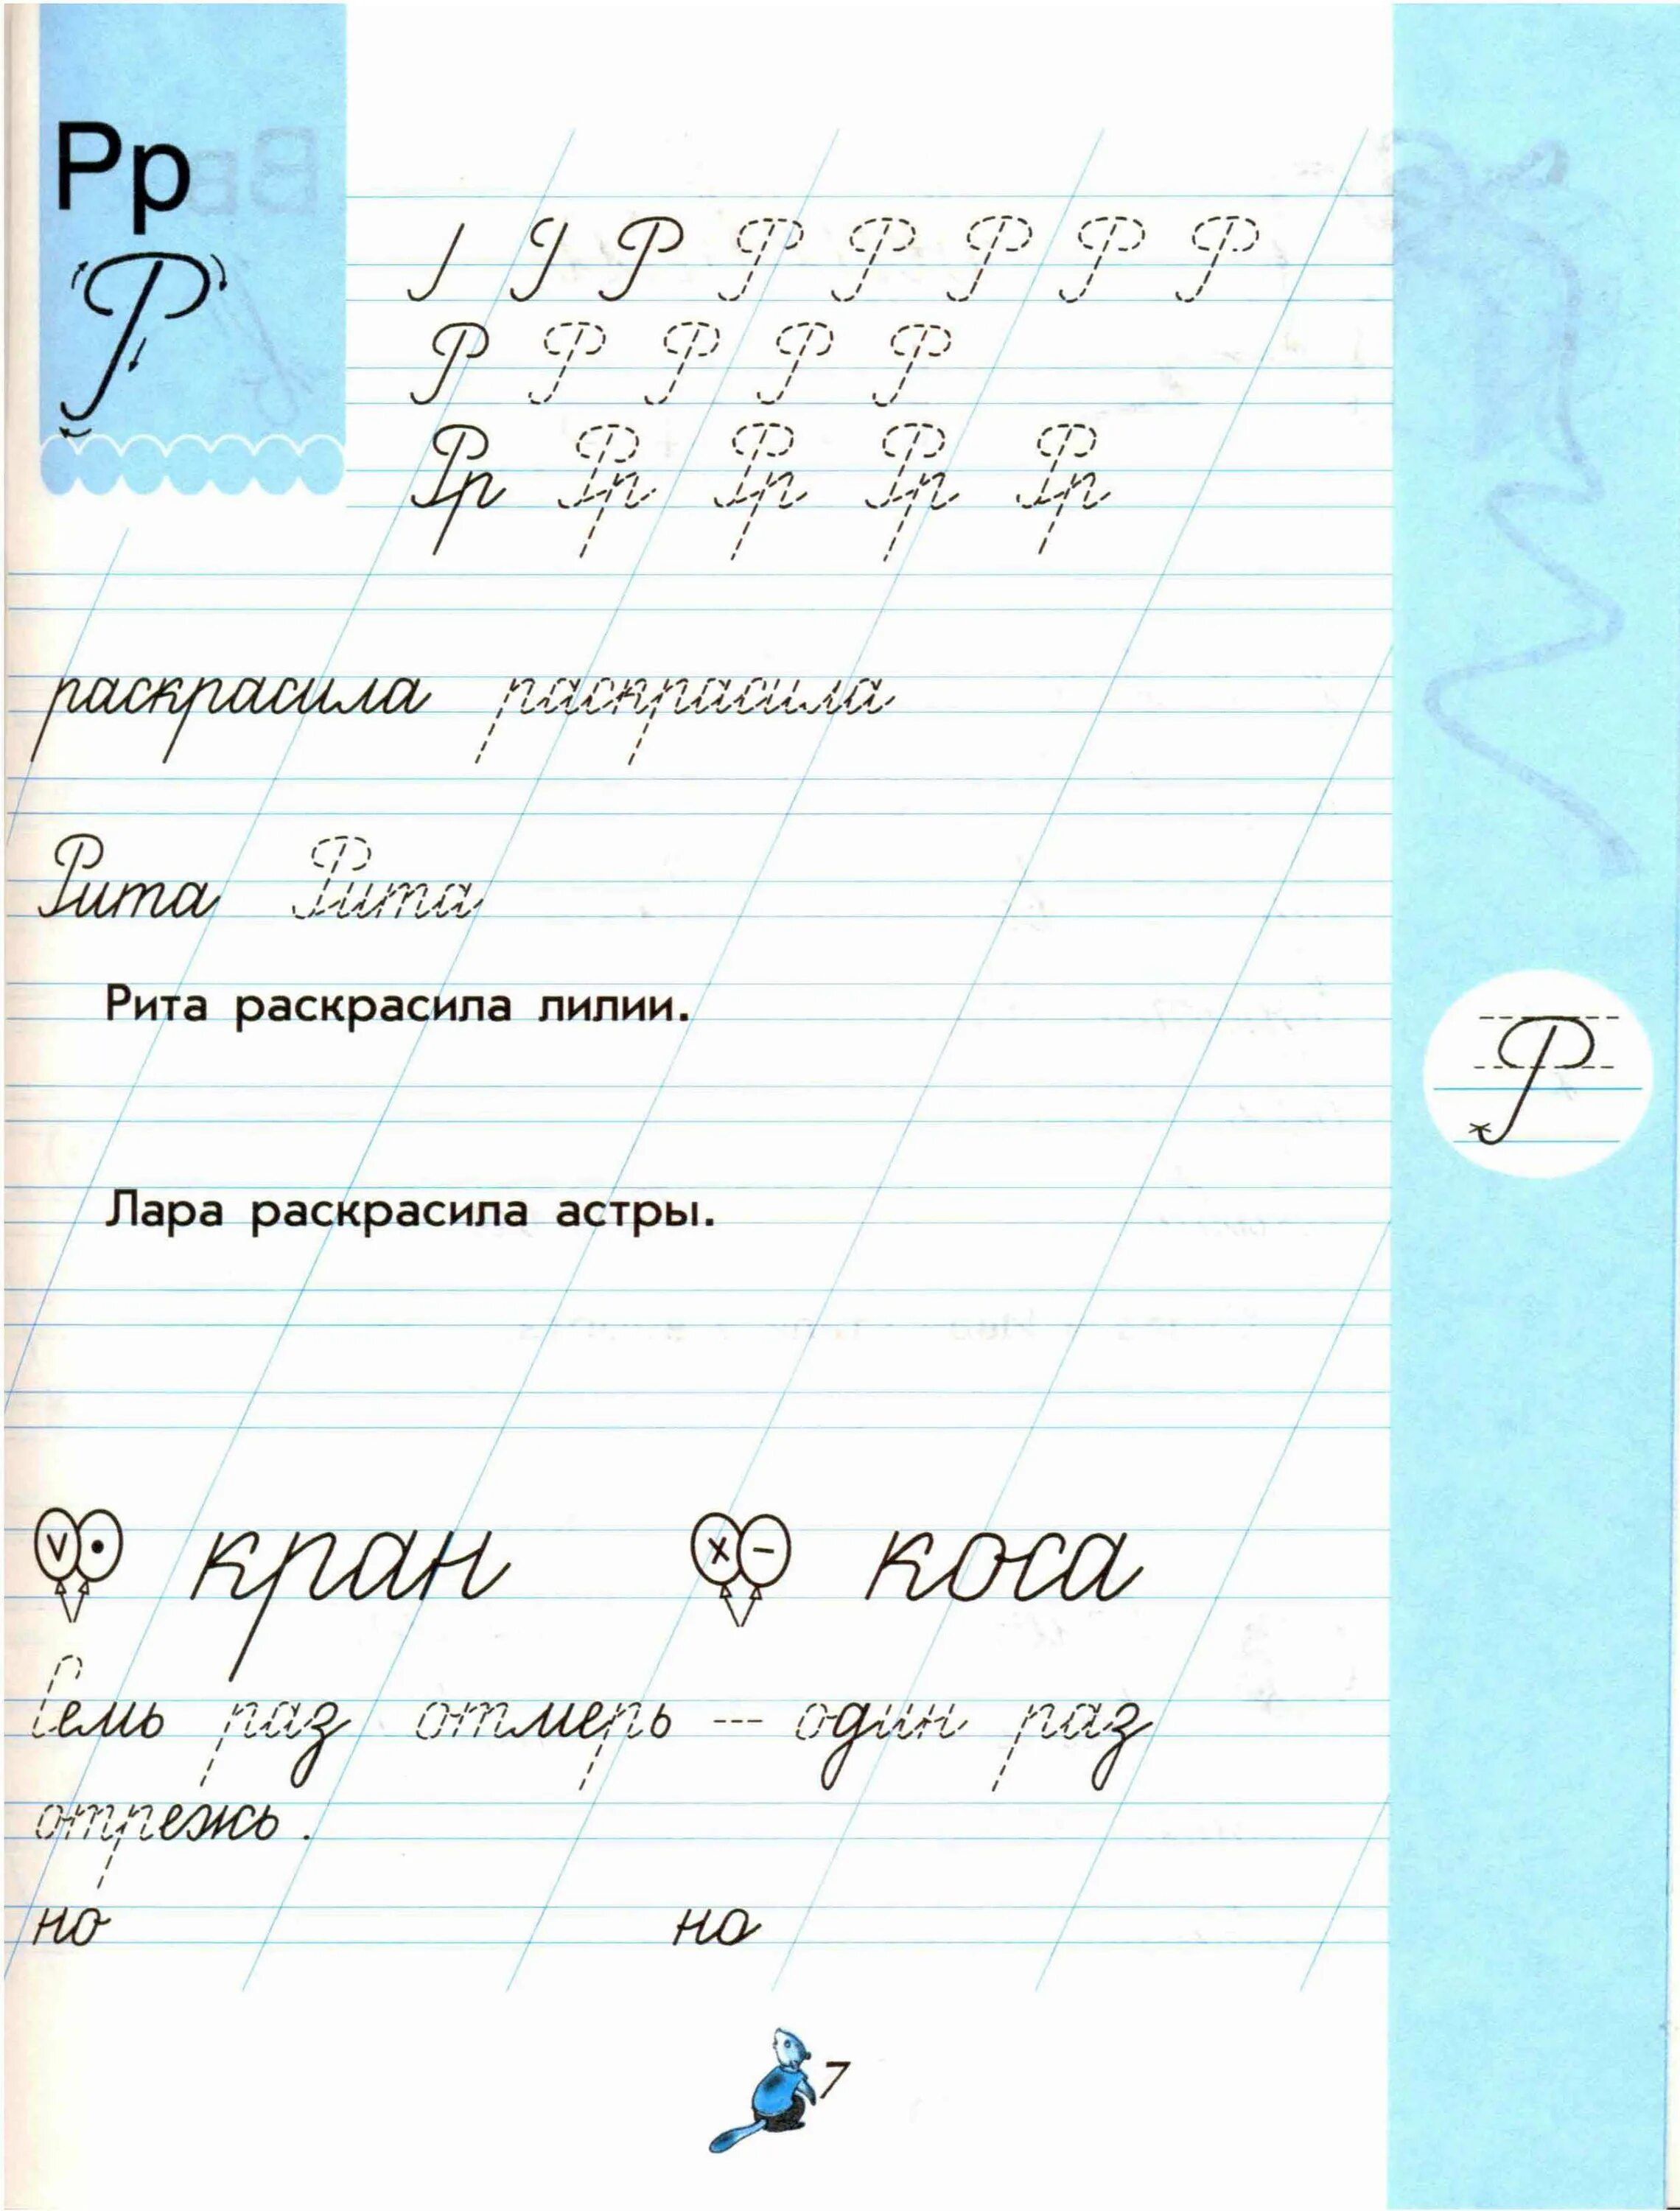 Рр
Р
Р Р Р Р Р Р
Р Р Р Р Р
Рр Рр Рр Рр Рр
раскрасила раскрасила
Рита Рита
Рита раскрасила лилии.
Р
Лара раскрасила астры.
v • кран x – коса
Семь раз отмерь — один раз
отрежь.
но на
7